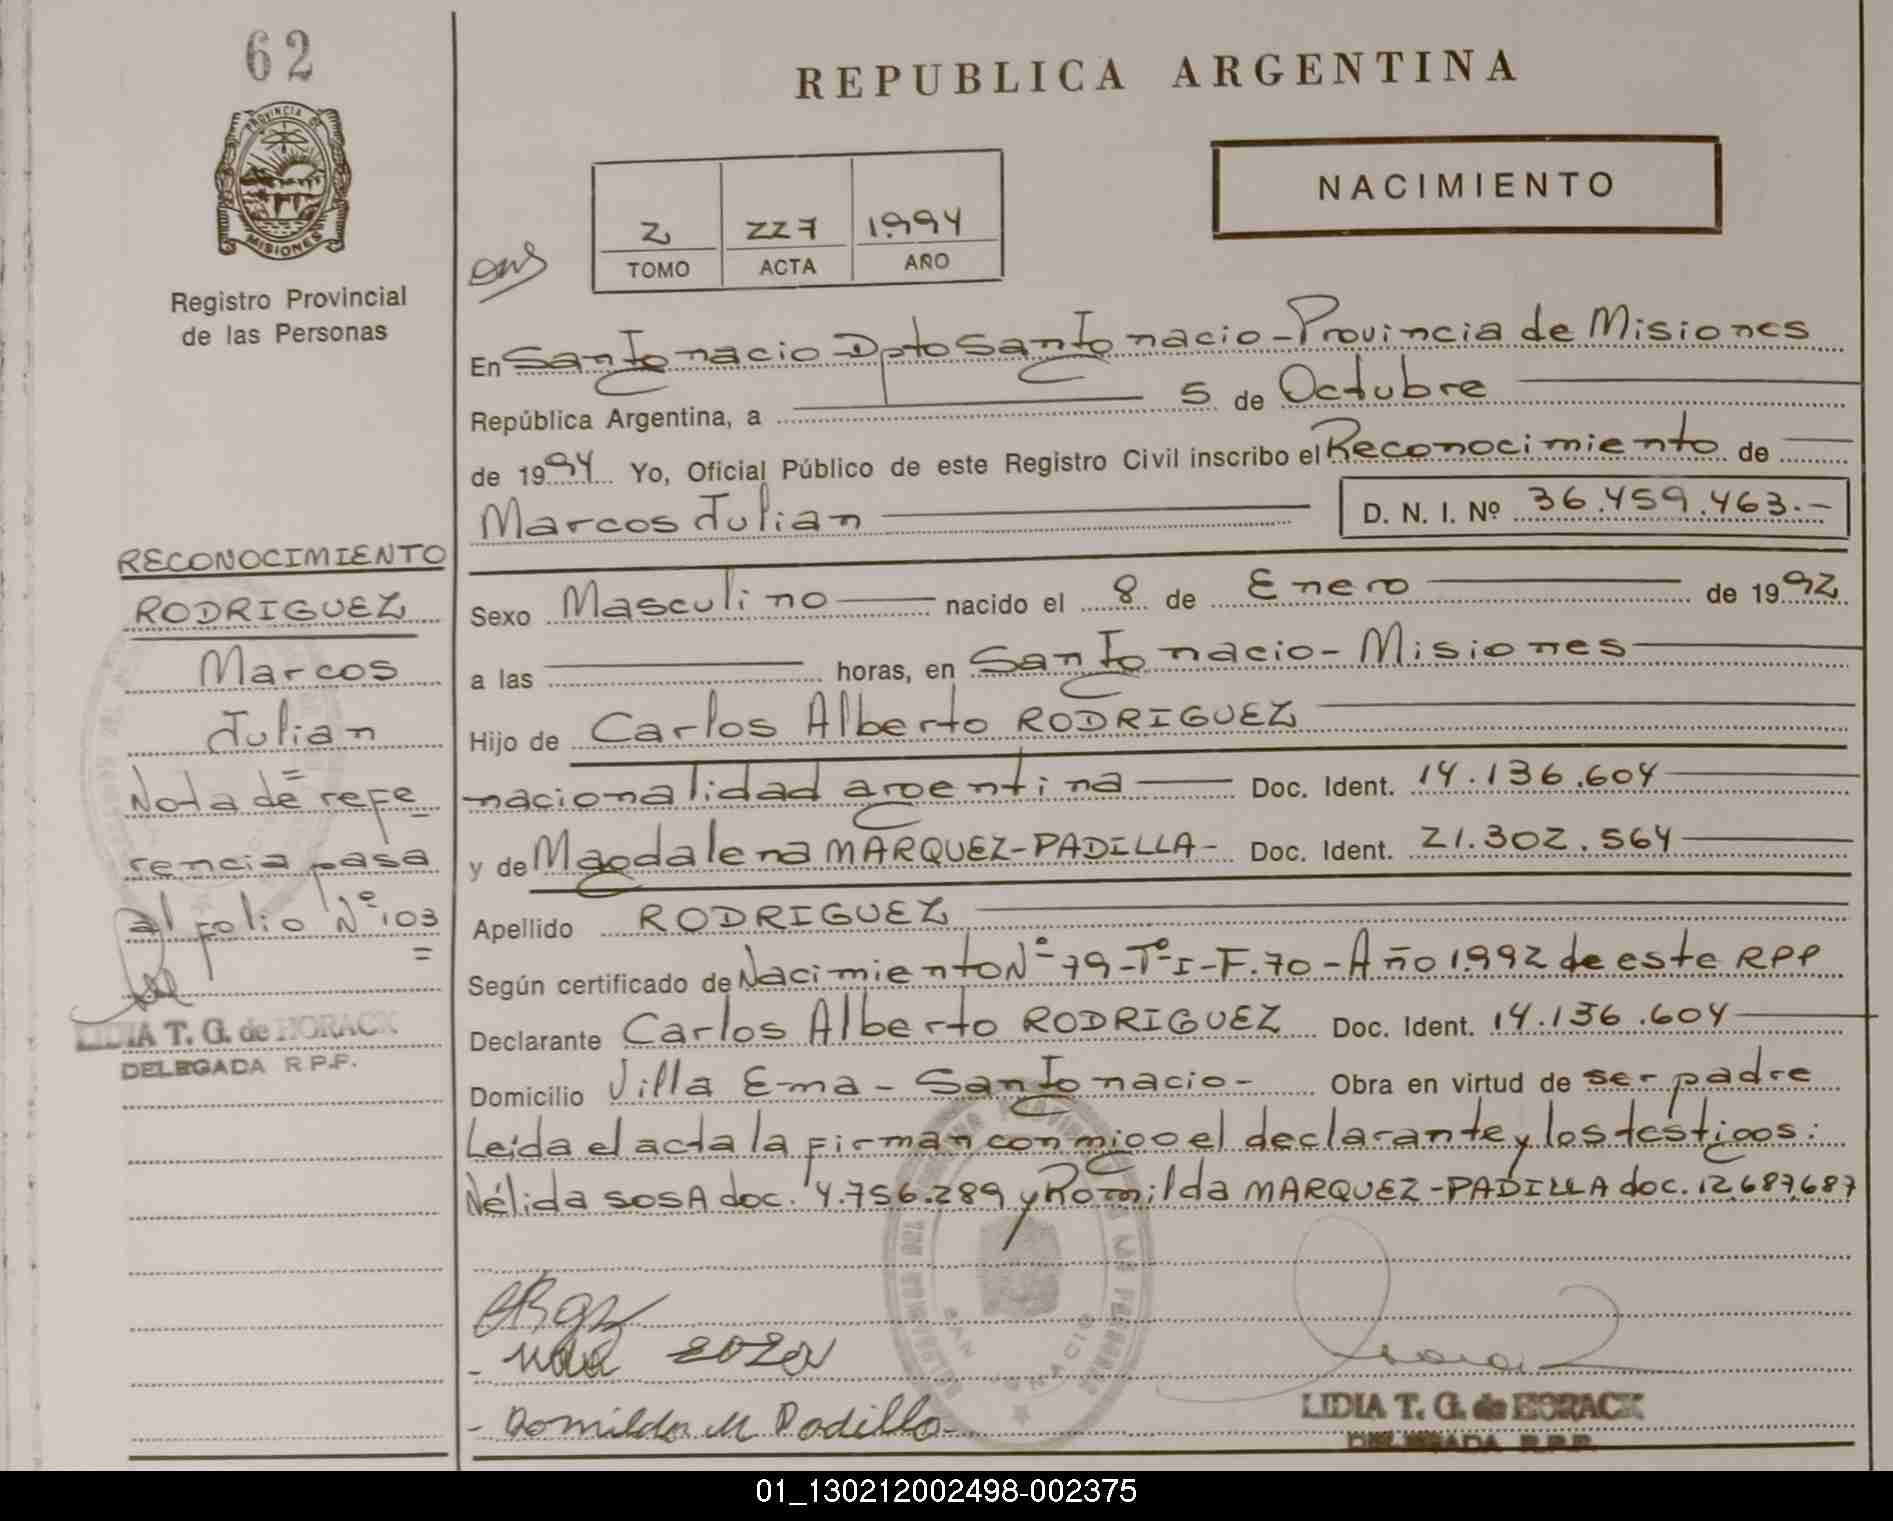 62
PROVINCIA DE
MISIONES
Registro Provincial
de las Personas
REPUBLICA ARGENTINA
NACIMIENTO
2 227 1.994
TOMO ACTA AÑO
En San Ignacio Dpto San Ignacio - Provincia de Misiones
República Argentina, a 5 de Octubre
de 1994 Yo, Oficial Público de este Registro Civil inscribo el Reconocimiento de
Marcos Julian D. N. I. Nº 36.459.463.-
Sexo Masculino nacido el 8 de Enero de 1992
a las horas, en San Ignacio - Misiones
Hijo de Carlos Alberto RODRIGUEZ
nacionalidad argentina Doc. Ident. 14.136.604
y de Magdalena MARQUEZ-PADILLA- Doc. Ident. 21.302.564
Apellido RODRIGUEZ
Según certificado de Nacimiento Nº 79-Tº I-F.70-Año 1.992 de este RPP
Declarante Carlos Alberto RODRIGUEZ Doc. Ident. 14.136.604
Domicilio Villa Ema - San Ignacio - Obra en virtud de ser padre
Leída el acta la firman conmigo el declarante y los testigos:
Nélida SOSA doc. 4.756.289 y Romilda MARQUEZ-PADILLA doc. 12.687.687
- Romilda M Padilla -
LIDIA T. G. de HORACK
DELEGADA R.P.P.
RECONOCIMIENTO
RODRIGUEZ
Marcos
Julian
=
Nota de refe
rencia pasa
al folio Nº 103
=
LIDIA T. G. de HORACK
DELEGADA R.P.P.
01_130212002498-002375